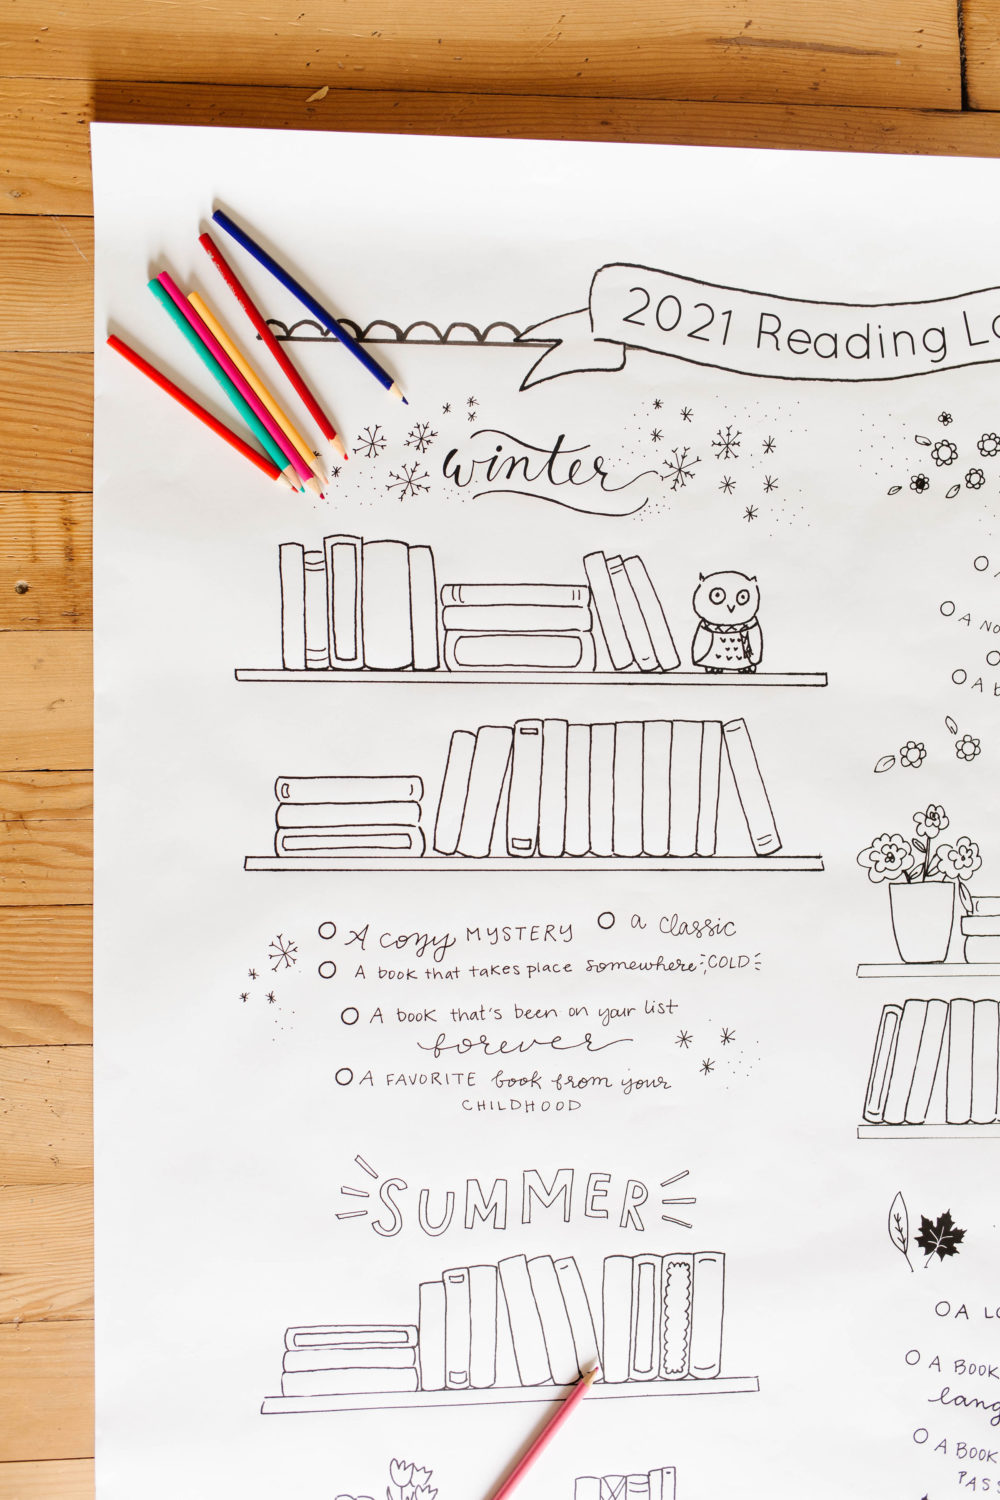 2021 Reading
winter
A cozy MYSTERY
a classic
A book that takes place somewhere COLD
A book that's been on your list
forever
A FAVORITE book from your
CHILDHOOD
SUMMER
A
A
A
A BOOK
A BOOK